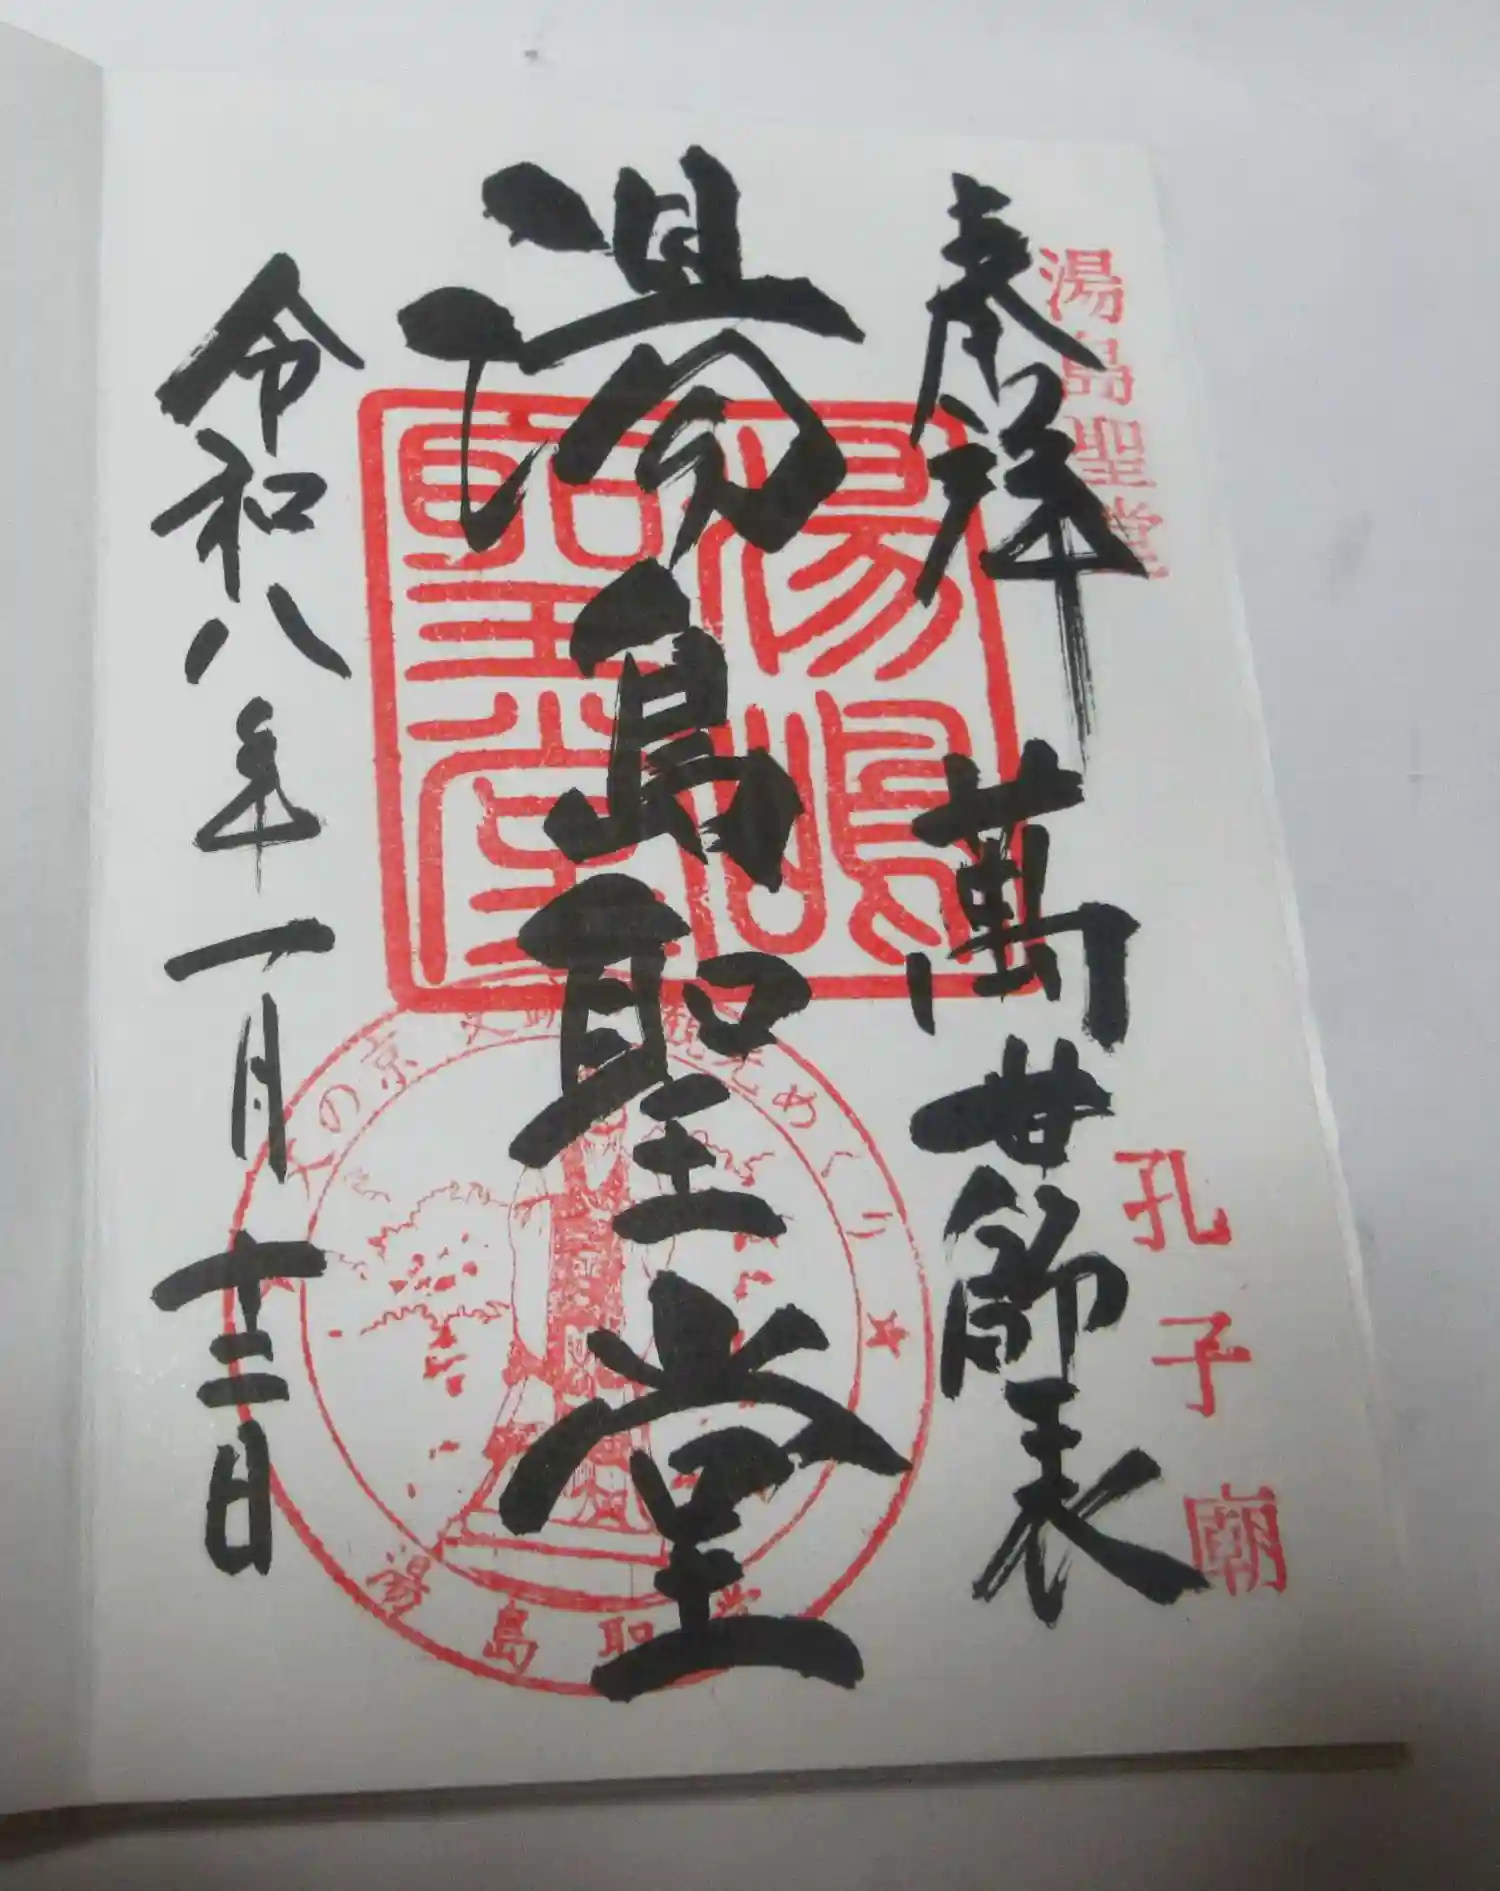 湯島聖堂
孔子廟
奉拝 萬世師表
湯島聖堂
令和八年一月十二日
湯島聖堂
文
京の
めぐり
湯島聖堂